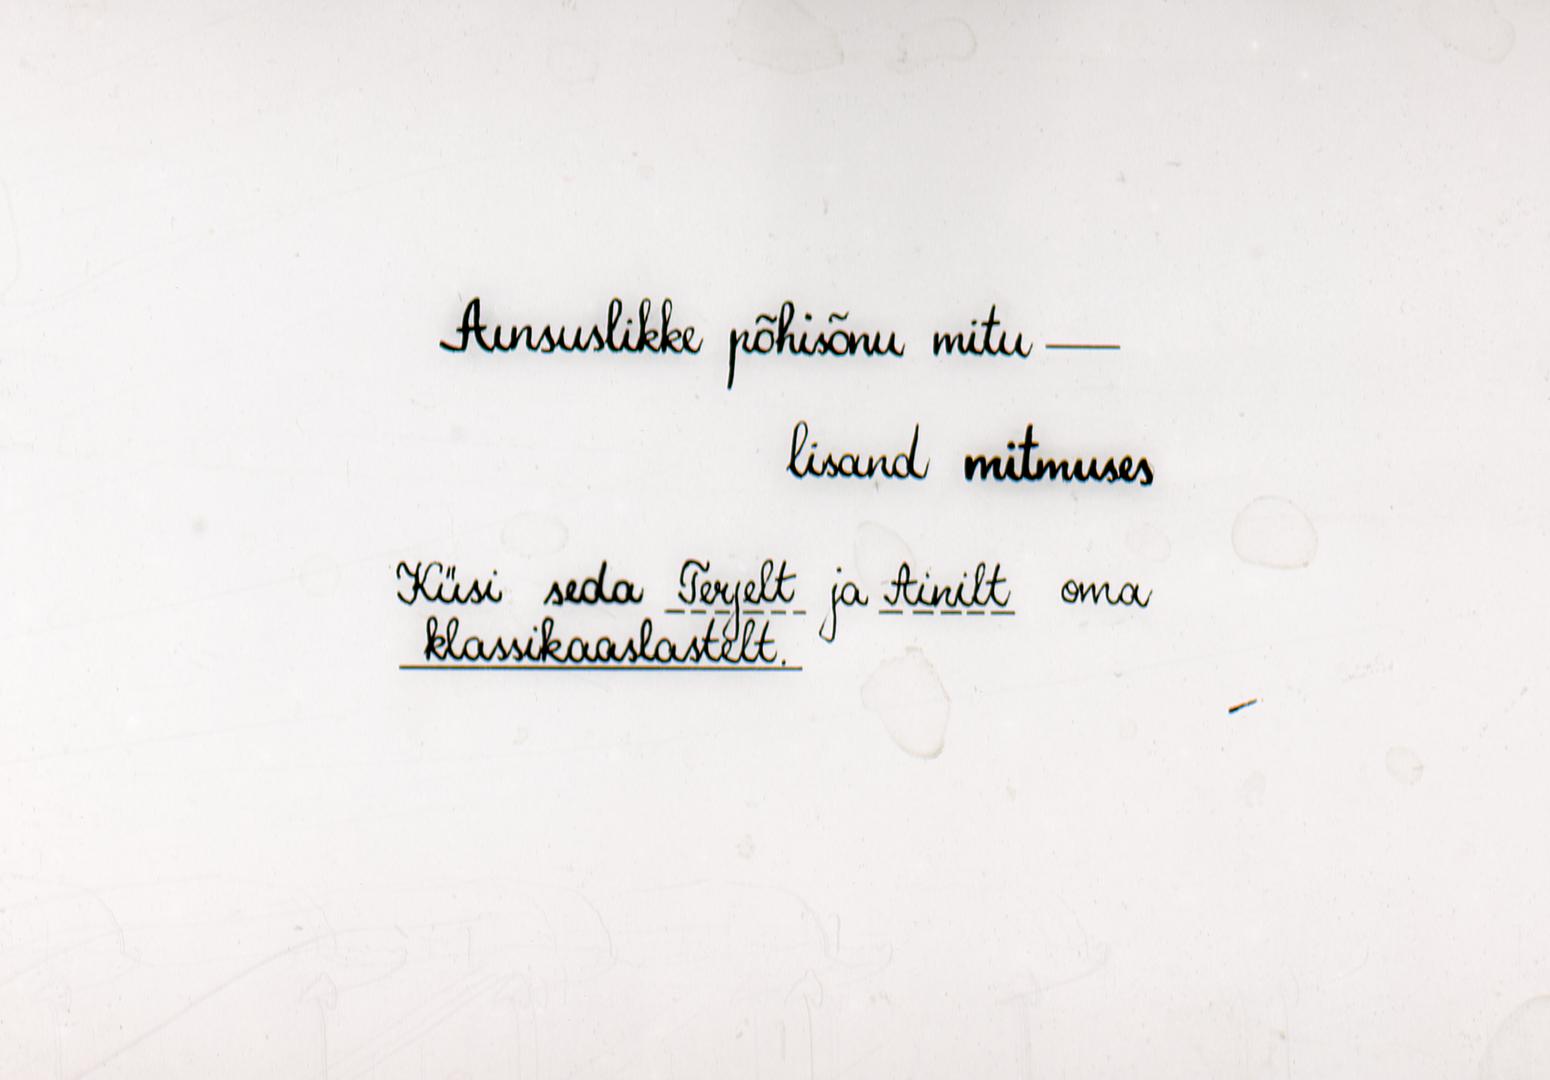 Ainsuslikke põhisõnu mitu —
lisand mitmuses
Küsi seda Terjelt ja Ainilt oma
klassikaaslastelt.